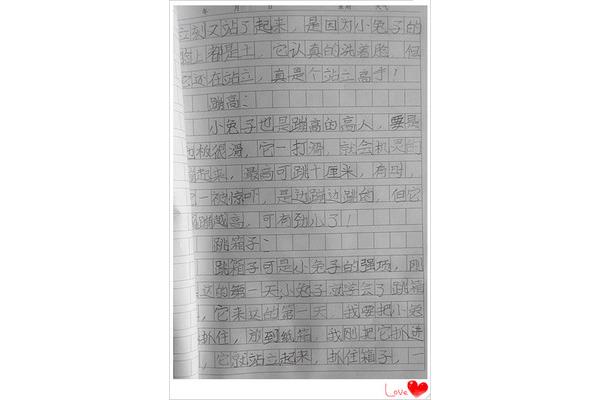 年 月 日 星期 天气
立刻又站了起来，是因为小兔子的
脸上都是土，它认真的洗着脸，但
它还在站立，真是个站立高手！
蹦高：
小兔子也是蹦高的高人，要是
地板很滑，它一打滑，就会机灵的
起来，最高可跳十厘米，有时，
一被惊吓，是边蹦边跳的，但它
蹦越高，可有劲儿了！
跳箱子：
跳箱子可是小兔子的强项，刚
来这的第一天，小兔子就学会了跳箱
，它来这的第一天，我要把小兔
抓住，放到纸箱，我刚把它抓进
，它就站立起来，抓住箱子，一
Love